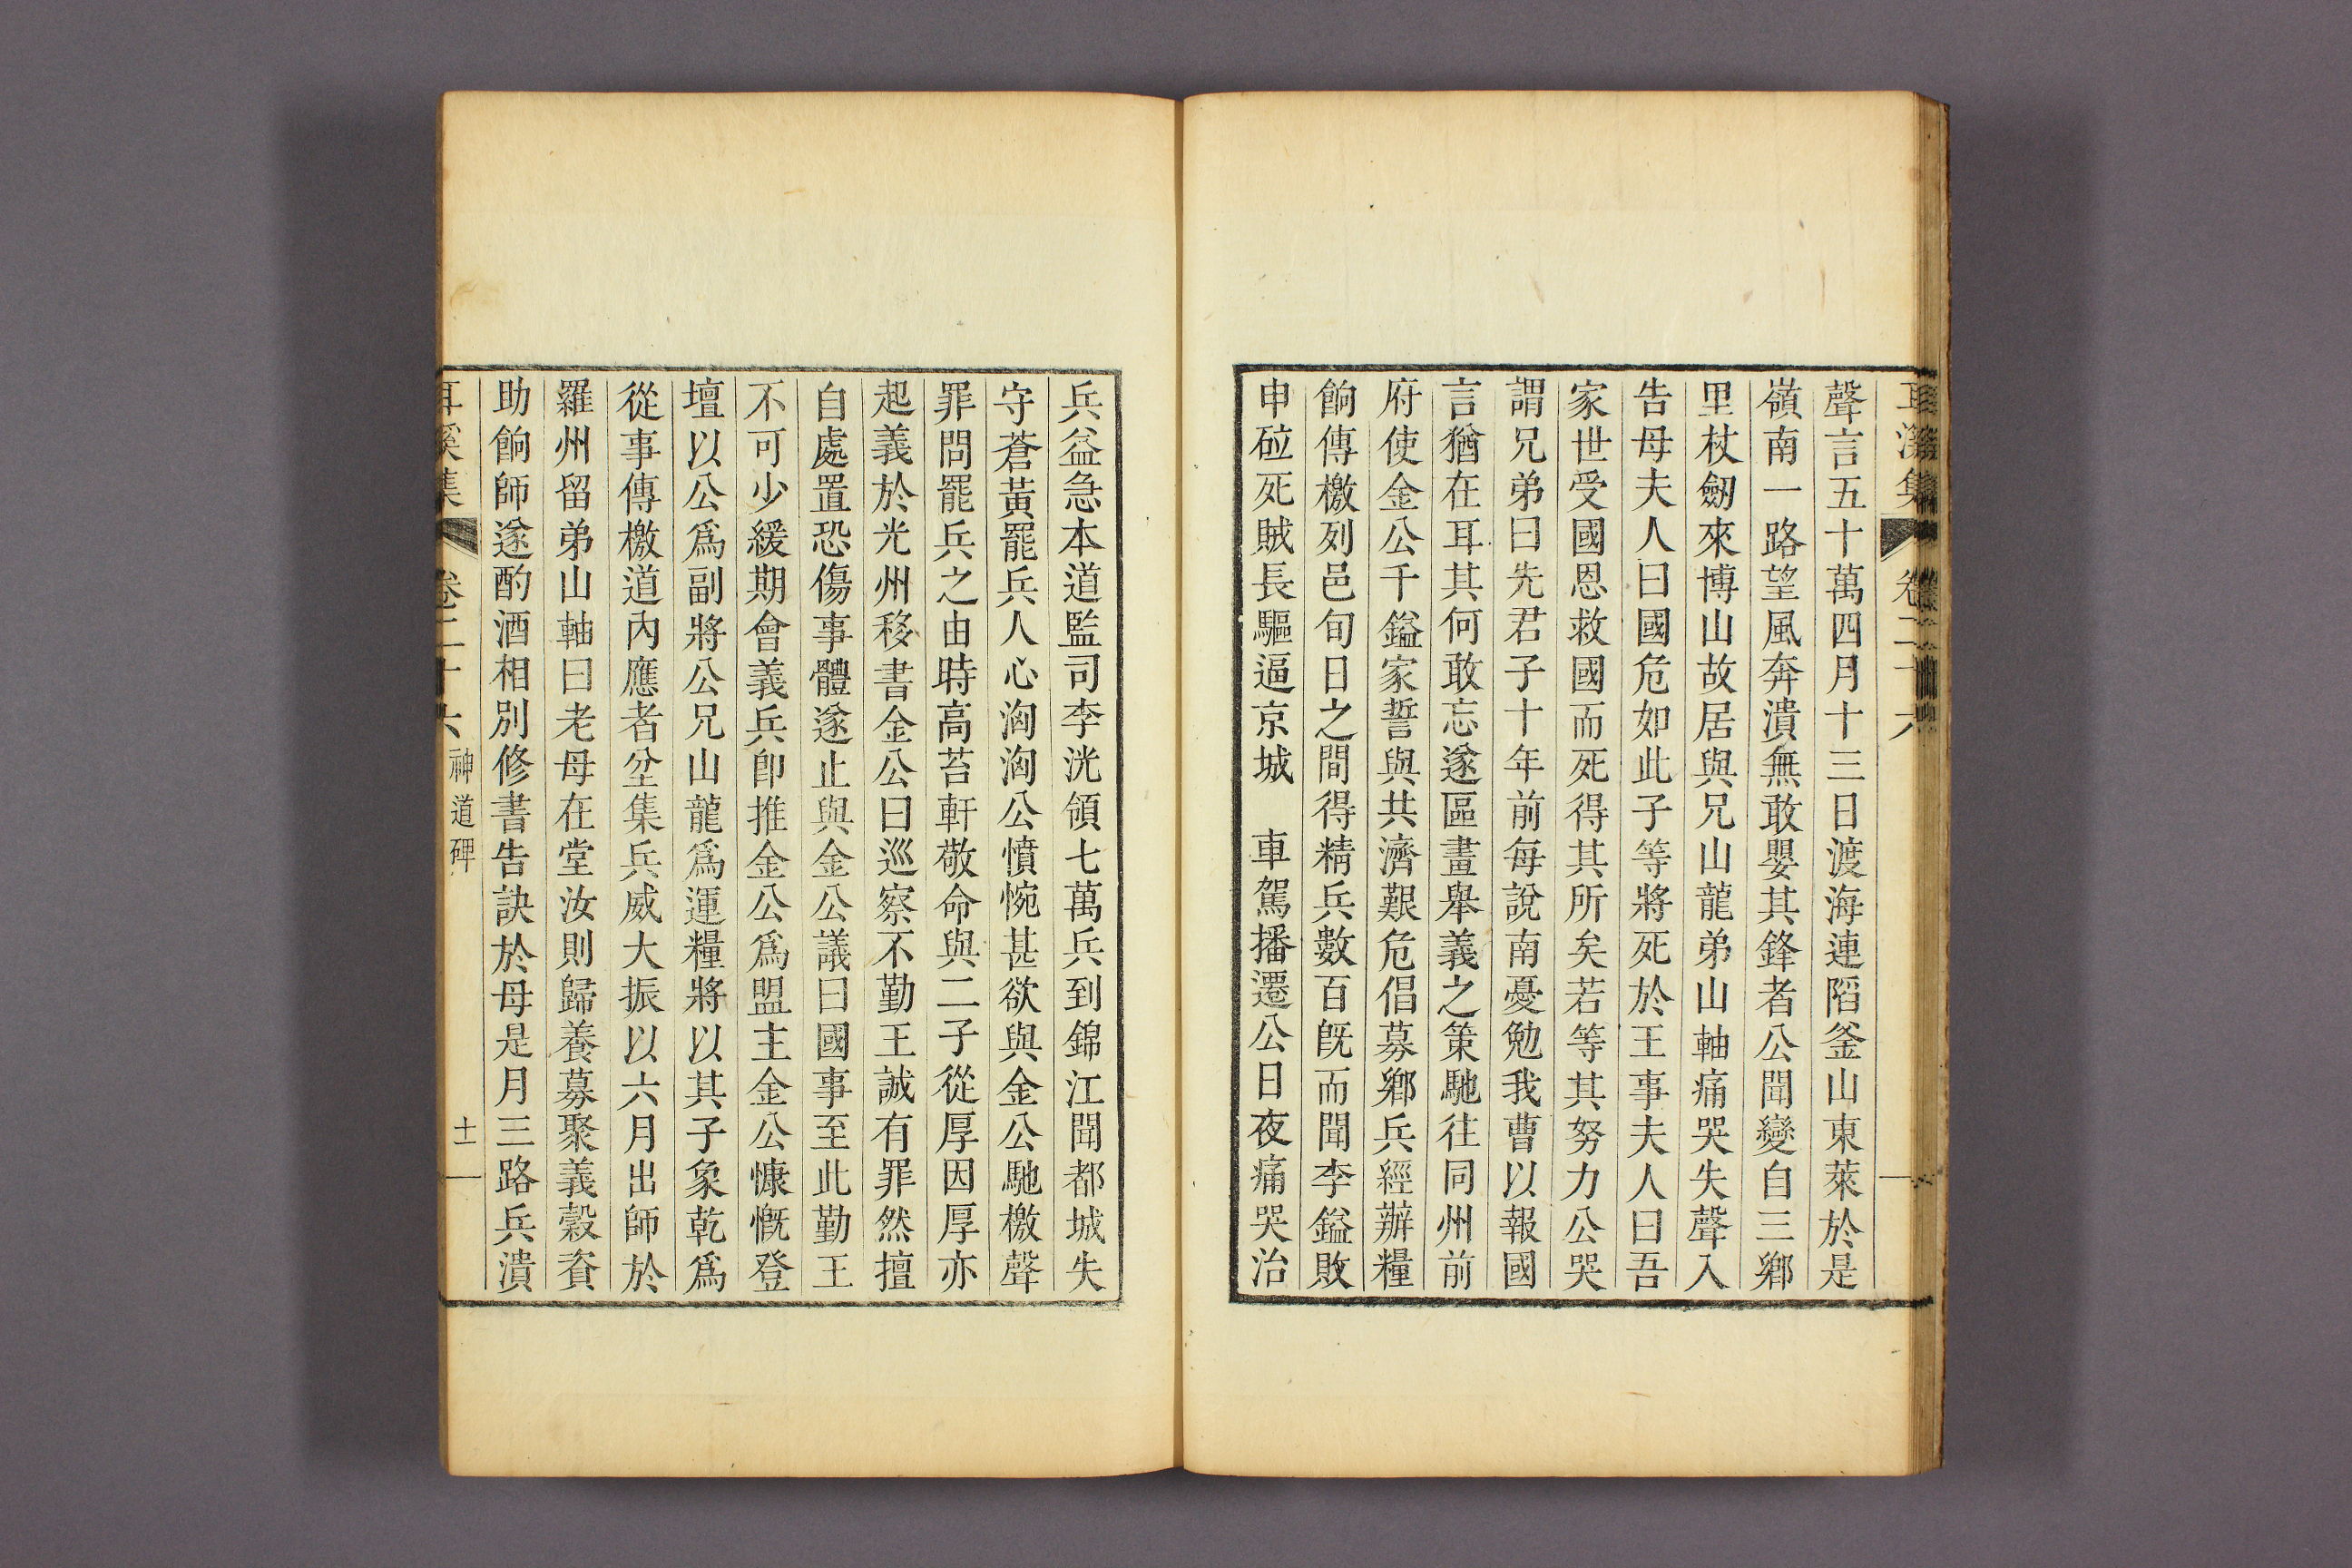 耳溪集 卷二十六
聲言五十萬四月十三日渡海連陷釜山東萊於是
嶺南一路望風奔潰無敢嬰其鋒者公聞變自三鄉
里杖劒來博山故居與兄山龍弟山軸痛哭失聲入
告母夫人曰國危如此子等將死於王事夫人曰吾
家世受國恩救國而死得其所矣若等其努力公哭
謂兄弟曰先君子十年前每說南憂勉我曹以報國
言猶在耳其何敢忘遂區畫舉義之策馳往同州前
府使金公千鎰家誓與共濟艱危倡募鄉兵經辦糧
餉傳檄列邑旬日之間得精兵數百旣而聞李鎰敗
申砬死賊長驅逼京城　車駕播遷公日夜痛哭治
兵益急本道監司李洸領七萬兵到錦江聞都城失
守蒼黃罷兵人心洶洶公憤惋甚欲與金公馳檄聲
罪問罷兵之由時高苔軒敬命與二子從厚因厚亦
起義於光州移書金公曰巡察不勤王誠有罪然擅
自處置恐傷事體遂止與金公議曰國事至此勤王
不可少緩期會義兵卽推金公爲盟主金公慷慨登
壇以公爲副將公兄山龍爲運糧將以其子象乾爲
從事傳檄道內應者坌集兵威大振以六月出師於
羅州留弟山軸曰老母在堂汝則歸養募聚義穀資
助餉師遂酌酒相別修書告訣於母是月三路兵潰
耳溪集 卷二十六 神道碑 十一